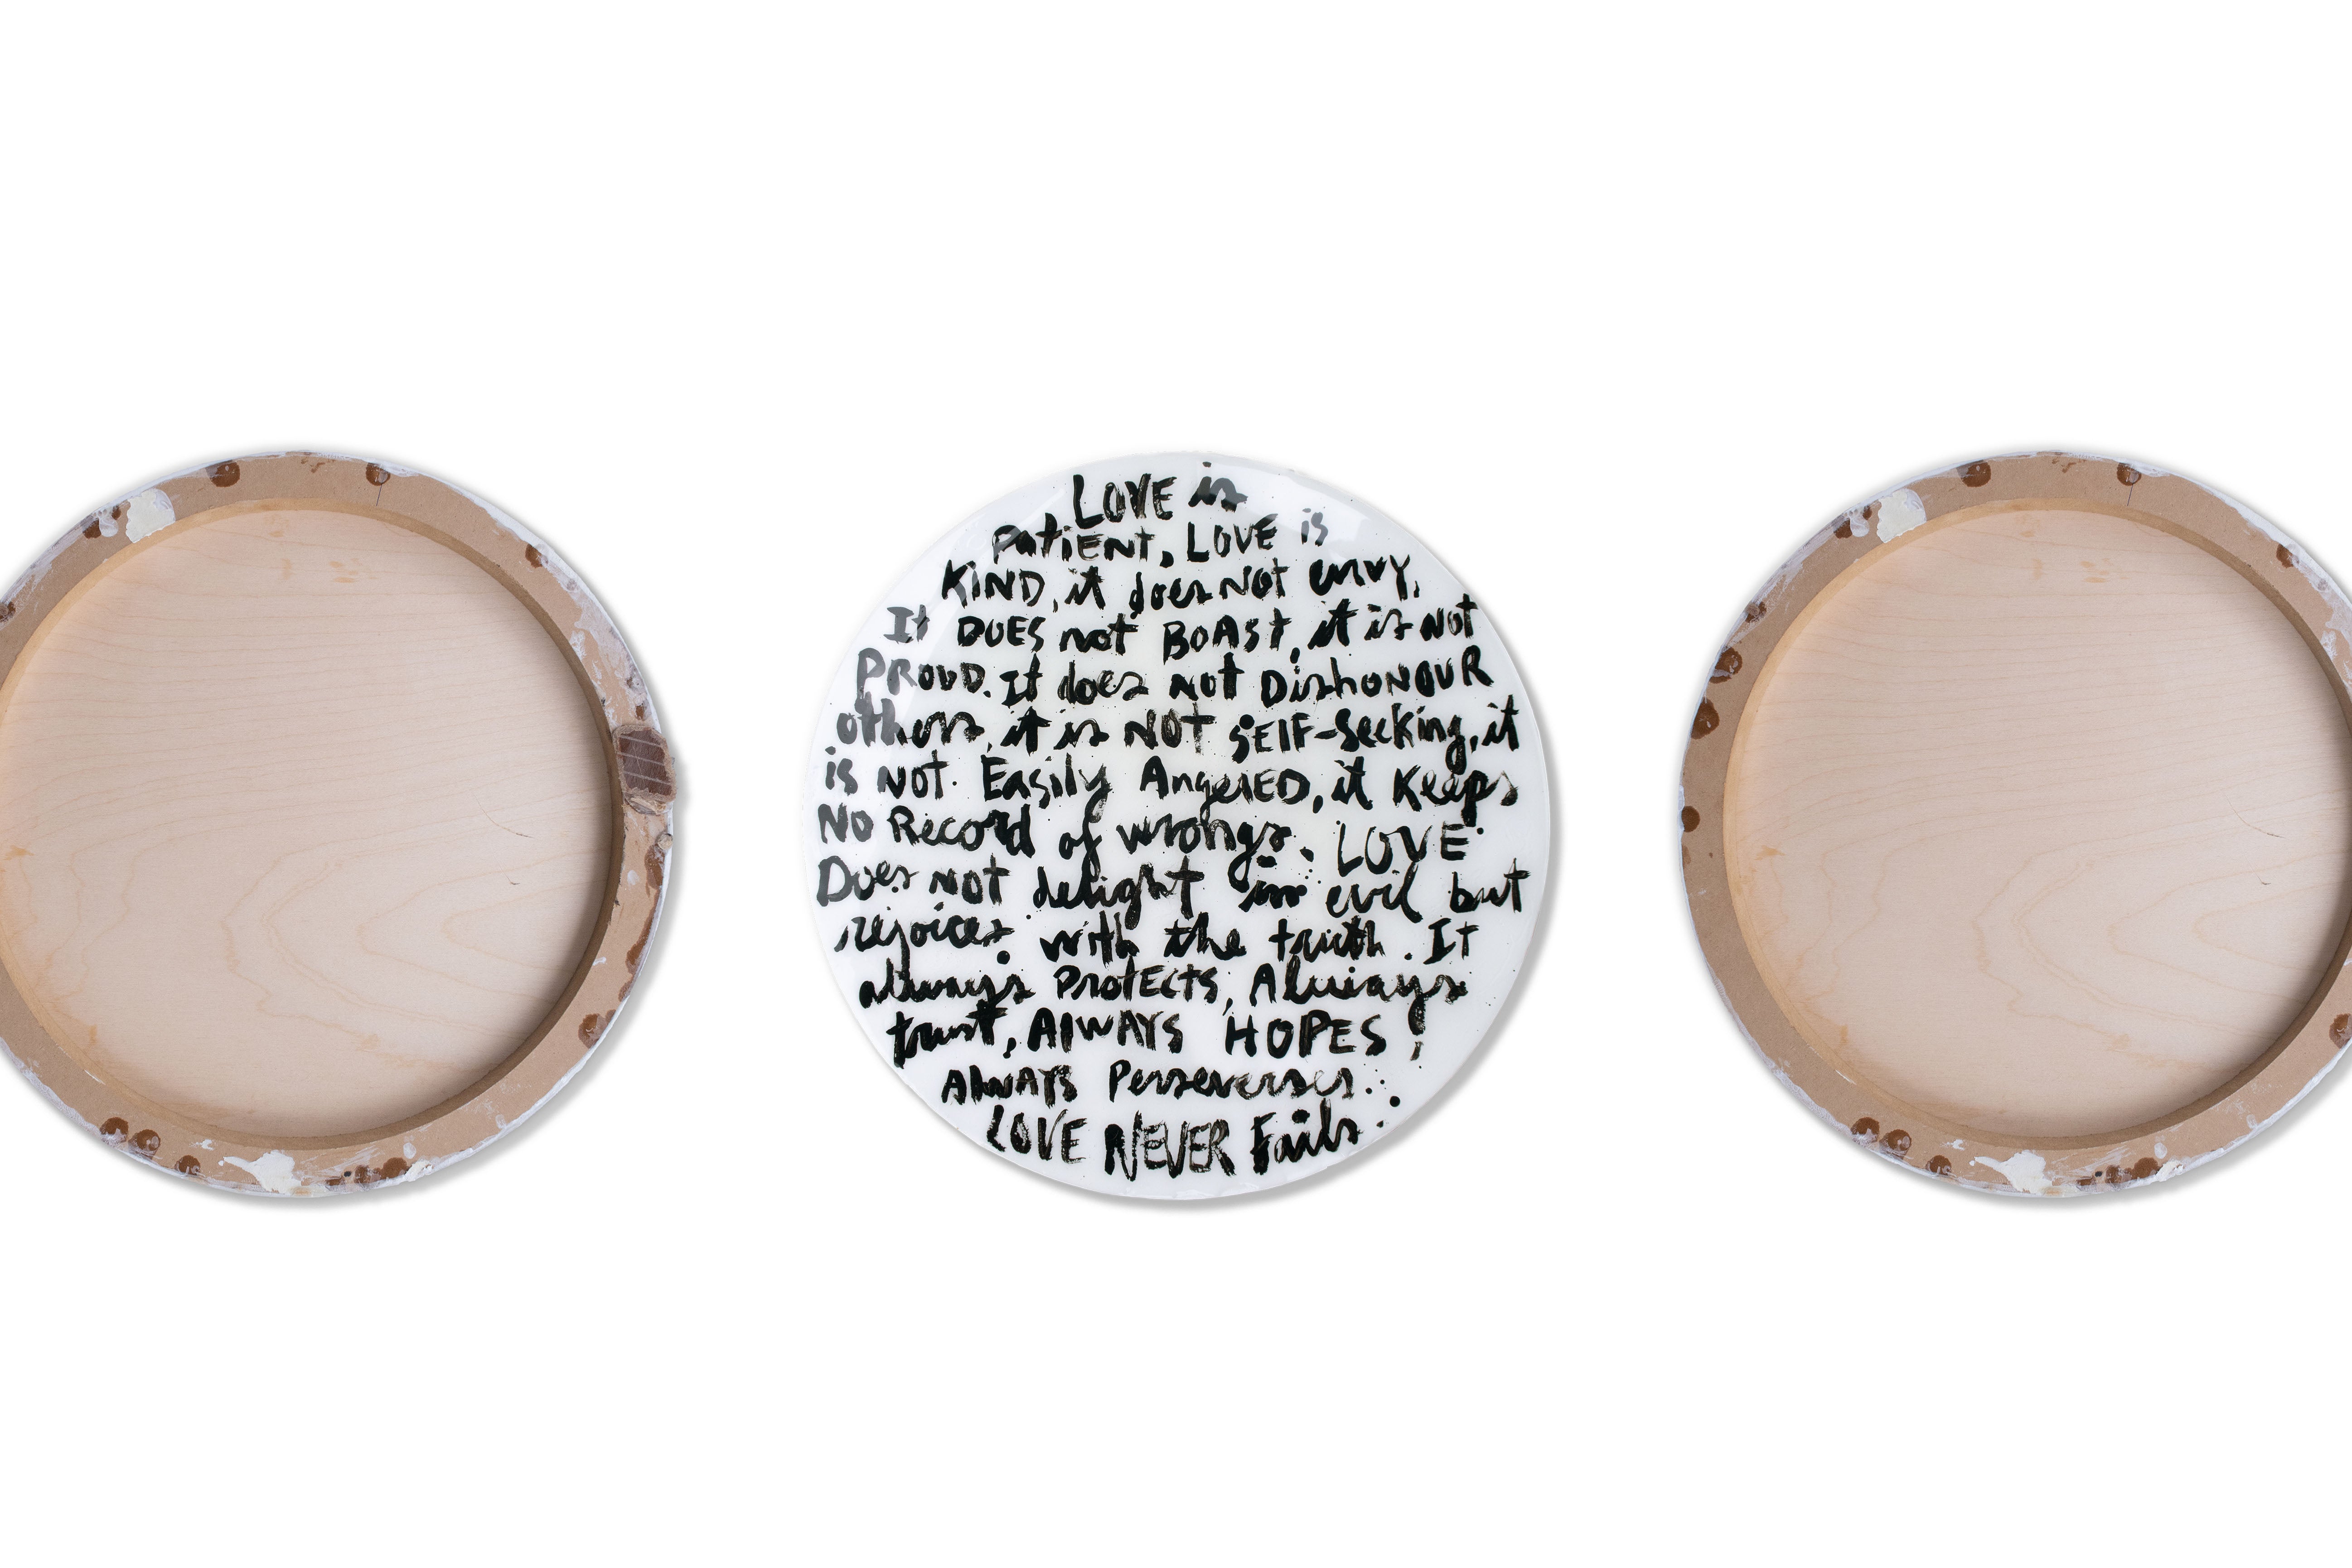 LOVE is
PatiENt, LOVE is
KIND, it does Not envy,
It DOES not BOASt, it is Not
PROUD. It does not DishONOUR
others, it is NOT SElF-Seeking, it
is Not Easily AngeRED, it Keeps
No Record of wrongs. LOVE
Does NOT delight in evil but
rejoices with the truth. It
always ProtEcts, Always
trust, AlWAYS HOPES,
AlWAYS Perseverses.
LOVE NEVER Fails.